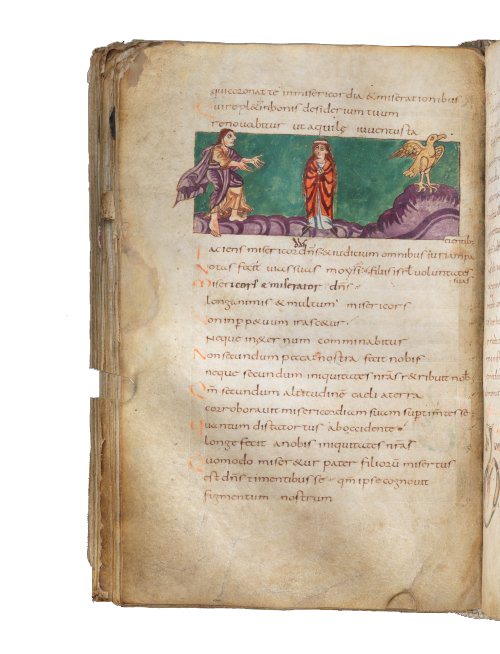 qui coronat te in misericordia & miserationibus
Qui replet in bonis desiderium tuum
renovabitur ut aquile iuventus ta
Faciens misericor dns & iudicium omnibus iniuriam pa
tientibus
Notas fecit vias suas moysi & filiis isrl voluntates
suas
Misericors & miserator dns
longanimis & multum misericors
Non inpp&uum irasc&ur
Neque in&ernum comminabitur
Non secundum peccata nostra fecit nobis
neque secundum iniquitates nras r&ribuit nob
Qm secundum altitudine caeli a terra
corroboravit misericordiam suam sup timentes se
Quantum distat ortus ab occidente
longe fecit a nobis iniquitates nras
Quomodo miser&ur pater filiorū misertus
est dns timentibus se qm ipse cognovit
figmentum nostrum